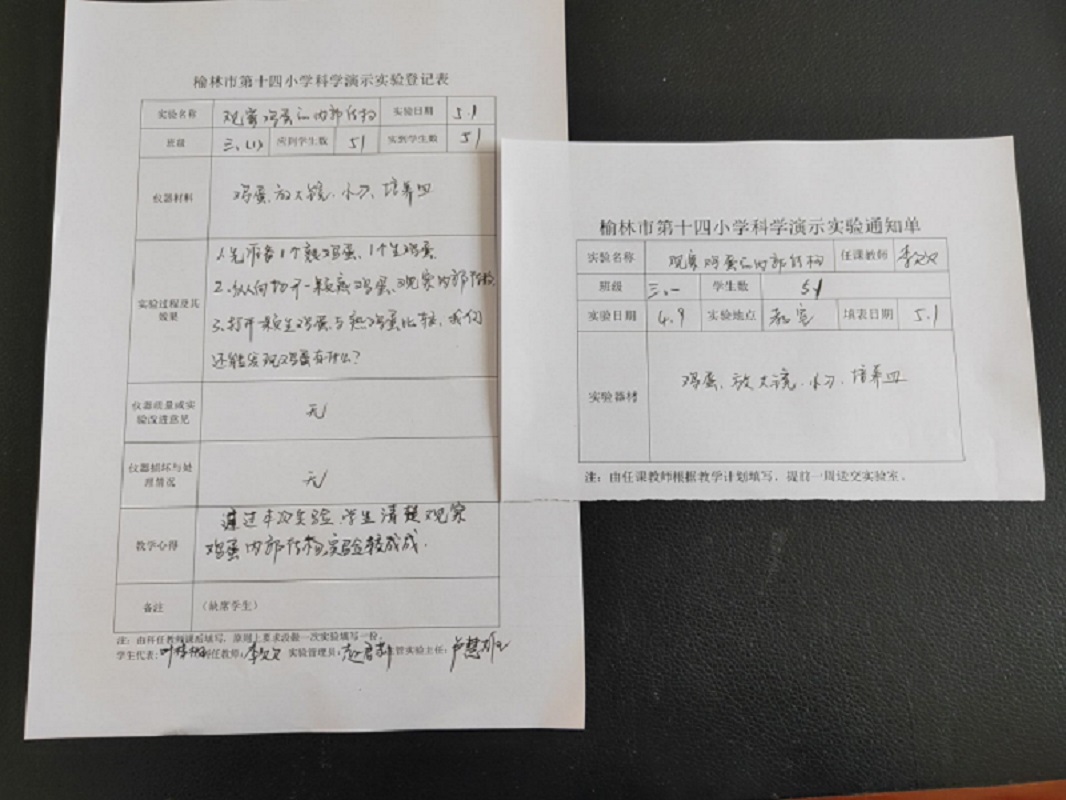 榆林市第十四小学科学演示实验登记表
实验名称 观察鸡蛋的内部结构 实验日期 5.1
班级 三.(1) 应到学生数 51 实到学生数 51
仪器材料 鸡蛋、放大镜、小刀、培养皿
实验过程及其效果
1.先准备1个熟鸡蛋、1个生鸡蛋
2.纵向切开一颗熟鸡蛋、观察内部结构
3.打开一颗生鸡蛋与熟鸡蛋比较,我们
还能发现鸡蛋有什么?
仪器质量或实验改进意见 无
仪器损坏与处理情况 无
教学心得 通过本次实验,学生清楚观察
鸡蛋内部结构,实验较成成.
备注 (缺席学生)
注:由科任教师课后填写,原则上要求没做一次实验填写一份。
学生代表: 科任教师:李文文 实验管理员: 主管实验主任:
榆林市第十四小学科学演示实验通知单
实验名称 观察鸡蛋的内部结构 任课教师 李文文
班级 三.一 学生数 51
实验日期 4.9 实验地点 教室 填表日期 5.1
实验器材 鸡蛋、放大镜、小刀、培养皿
注:由任课教师根据教学计划填写,提前一周送交实验室。